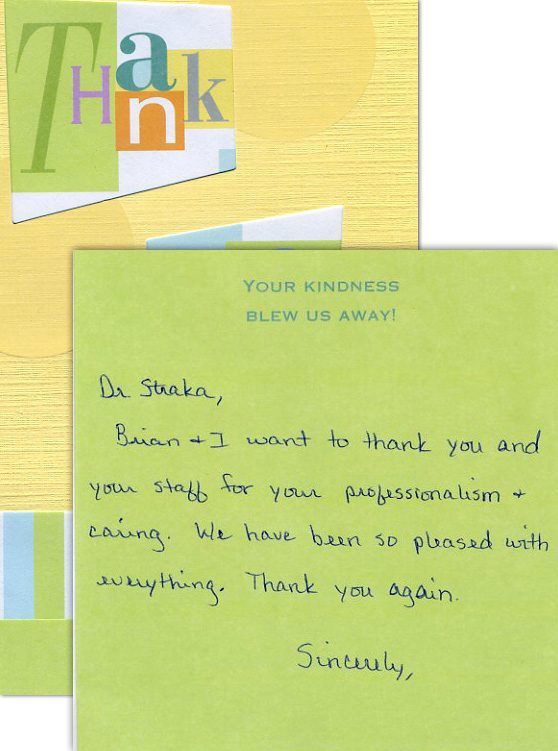 Thank
YOUR KINDNESS
BLEW US AWAY!
Dr Straka,
Brian + I want to thank you and
your staff for your professionalism +
caring. We have been so pleased with
everything. Thank you again.
Sincerely,